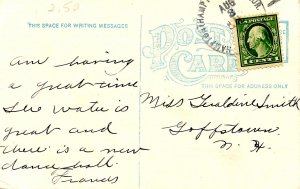 2.50
THIS SPACE FOR WRITING MESSAGES
POST CARD
THIS SPACE FOR ADDRESS ONLY
AUG
1 CENT 1
am having
a great time
the water is
great and
there is a new
dance hall.
Francis
Miss Geraldine Smith
Goffstown,
N. H.